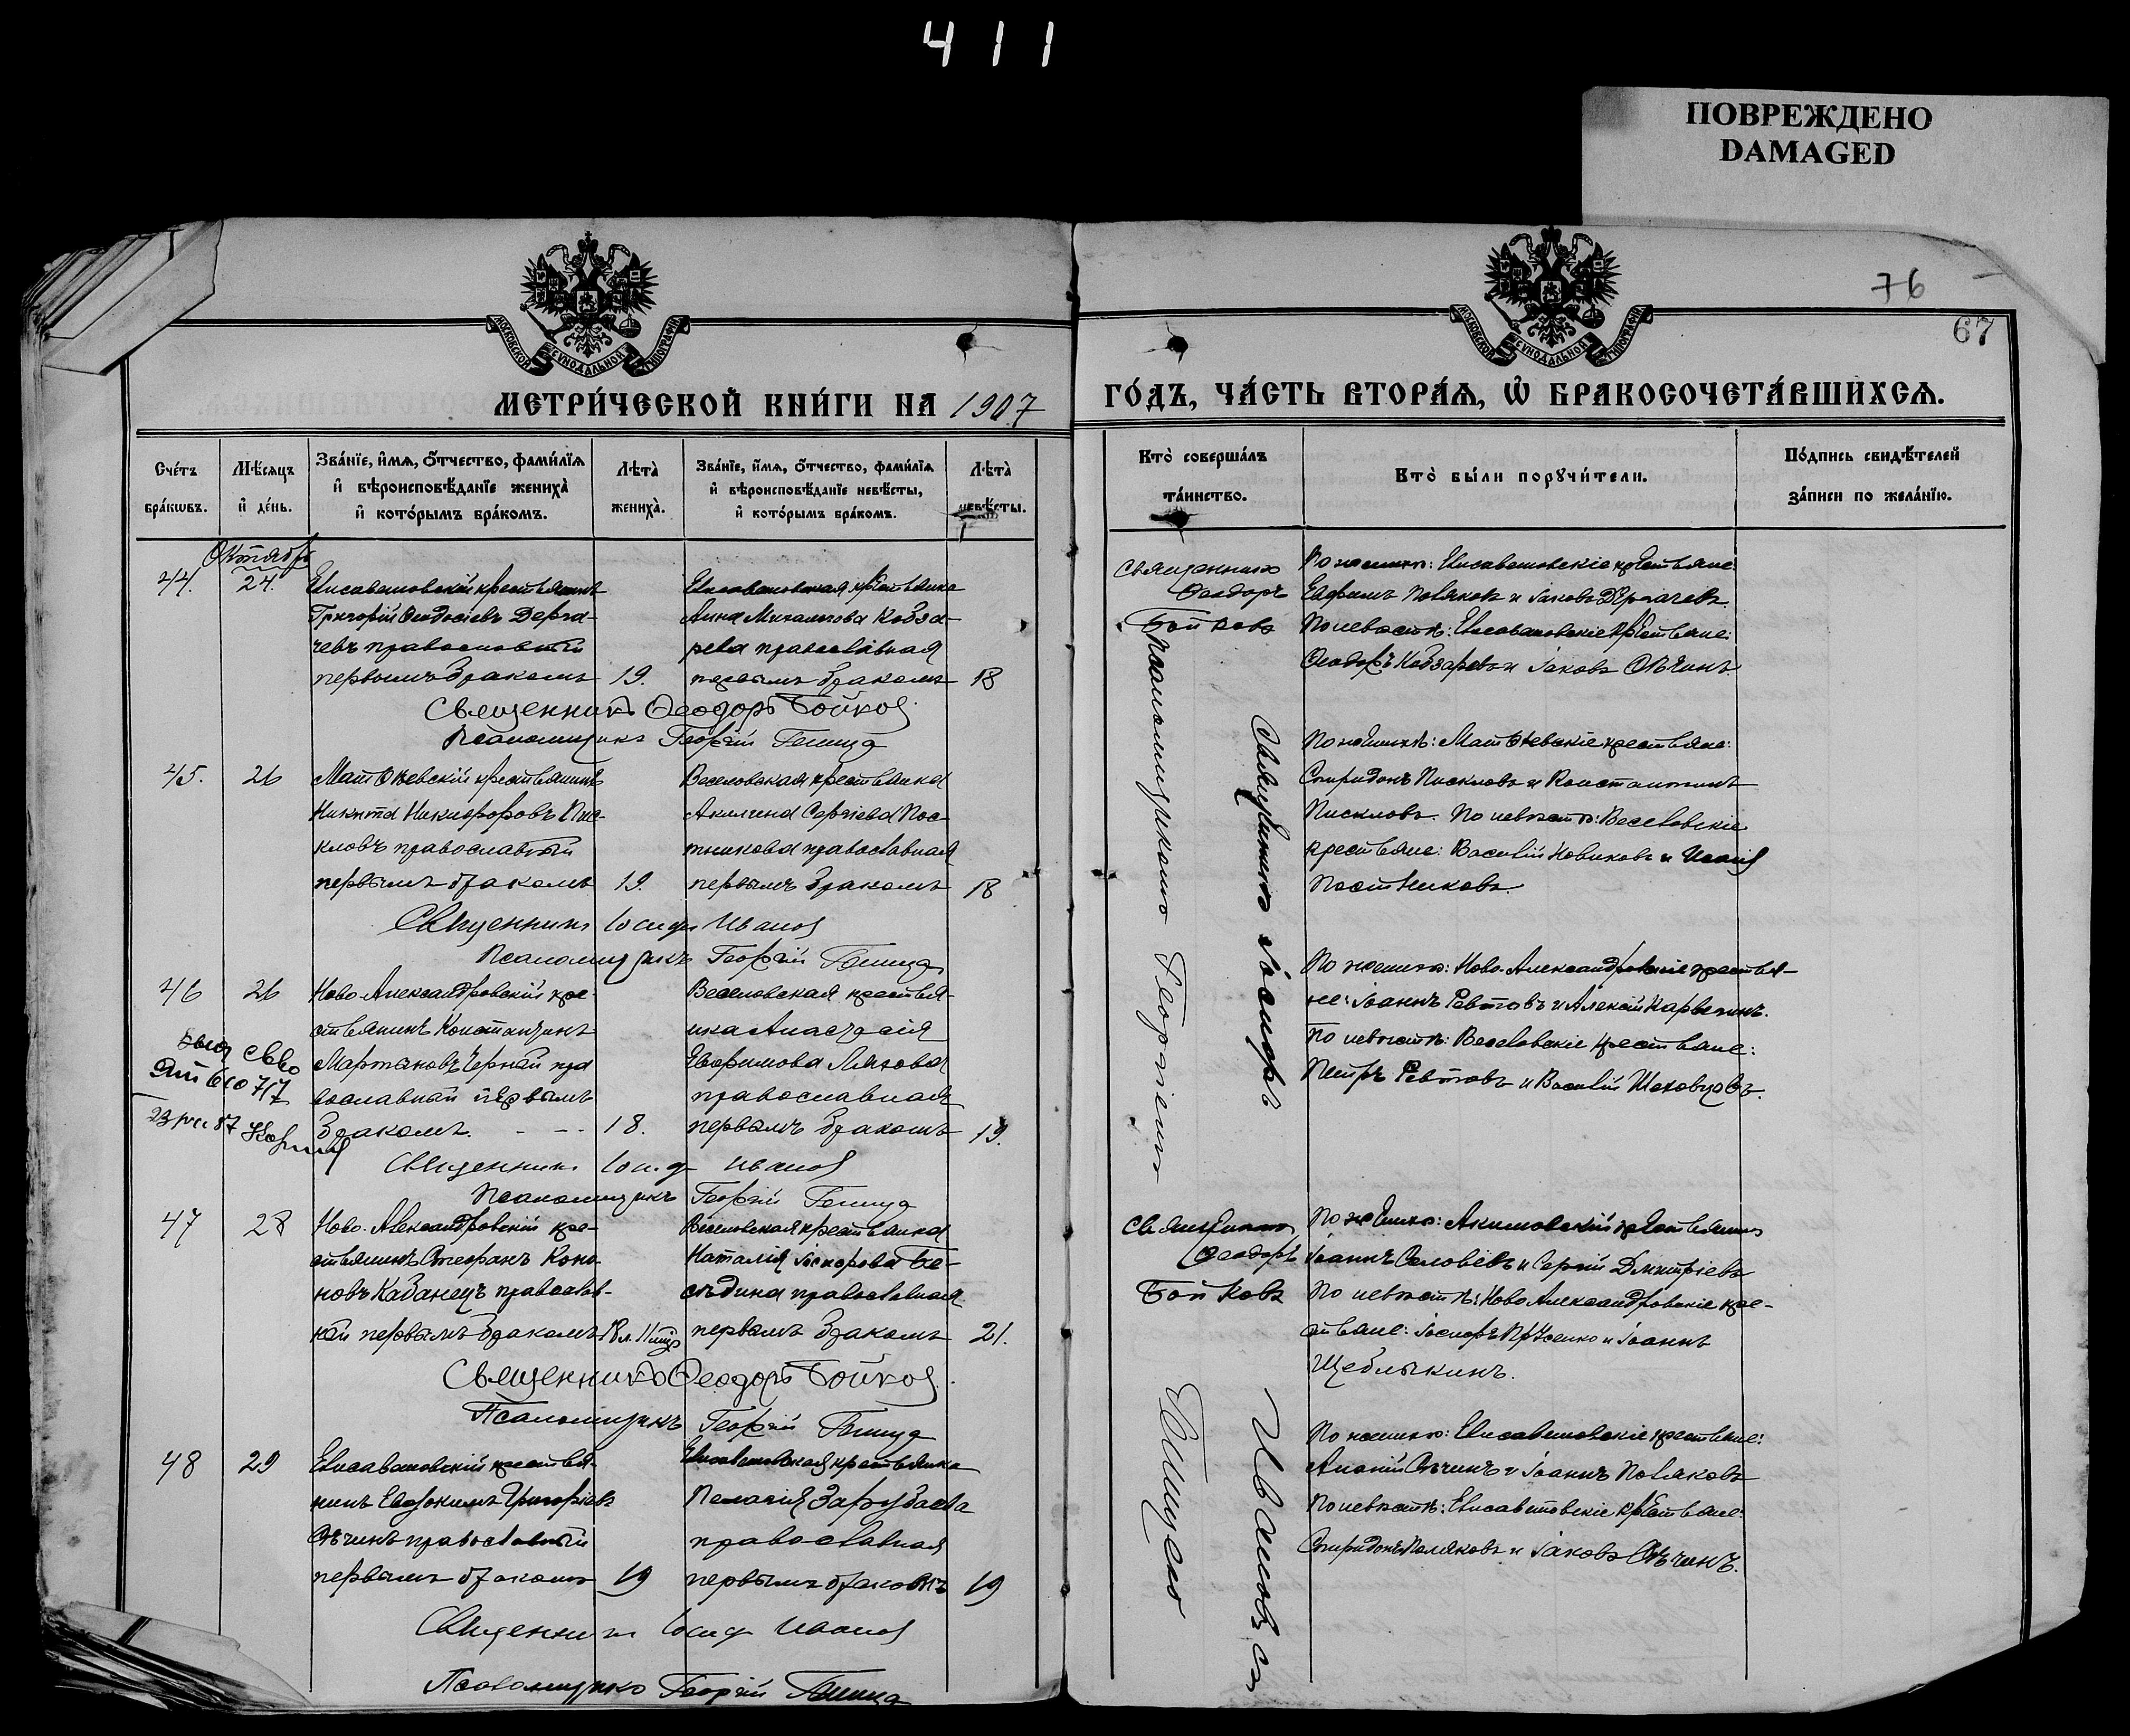 411
ПОВРЕЖДЕНО
DAMAGED
МОСКОВСКОЙ СУНОДАЛЬНОЙ ТИПОГРАФІИ
МЕТРИ́ЧЕСКОЙ КНИ́ГИ НА 1907
Сче́тъ бра́кѡвъ.
Мѣ́сяцъ и҆ де́нь.
Зва́нїе, и҆́мѧ, ѻ҆́тчество, фами́лїѧ
и҆ вѣроисповѣ́данїе жениха̀
и҆ кото́рымъ бра́комъ.
Лѣта̀ жениха̀.
Зва́нїе, и҆́мѧ, ѻ҆́тчество, фами́лїѧ
и҆ вѣроисповѣ́данїе невѣ́сты,
и҆ кото́рымъ бра́комъ.
Лѣта̀ невѣ́сты.
Октябрь
44. 24. Елисаветовскій крестьянинъ
Григорій Ѳеодосіевъ Дерга-
чевъ православный
первымъ бракомъ 19.
Елисаветовская крестьянка
Анна Михаилова Кобза-
рева православная
первымъ бракомъ 18
Священникъ Ѳеодоръ Бойковъ
Псаломщикъ Георгій
45. 26 Матвѣевскій крестьянинъ
Никита Никифоровъ Пис-
кловъ православный
первымъ бракомъ 19.
Веселовская крестьянка
Акилина Сергіева Пос-
тникова православная
первымъ бракомъ 18
Священникъ Іосифъ Ивановъ
Псаломщикъ Георгій
46 26 Ново-Александровскій кре-
стьянинъ Константинъ
Мартиновъ Чернай пра
вославный первымъ
бракомъ. - - - 18.
Веселовская крестья-
нка Анастасія
Евфимова Ляхова
православная
первымъ бракомъ 19.
Священникъ Іосифъ Ивановъ
Псаломщикъ Георгій
47 28 Ново-Александровскій кре-
стьянинъ Стефанъ Коно-
новъ Кабанецъ православ-
ный первымъ бракомъ 18 л. 11 мѣс
Веселовская крестьянка
Наталія Іосифова Бе-
сѣдина православная
первымъ бракомъ 21.
Священникъ Ѳеодоръ Бойковъ
Псаломщикъ Георгій
48 29 Елисаветовскій крестья-
нинъ Евдокимъ Григоріевъ
Сѣчинъ православный
первымъ бракомъ 19
Елисаветовская крестьянка
Пелагія Зарубаева
православная
первымъ бракомъ 19
Священникъ Іосифъ Ивановъ
Псаломщикъ Георгій
76
67
МОСКОВСКОЙ СУНОДАЛЬНОЙ ТИПОГРАФІИ
ГО́ДЪ, ЧА́СТЬ ВТОРА́Ѧ, Ѽ БРАКОСОЧЕТА́ВШИХСѦ.
Кто̀ соверша́лъ та́инство.
Кто̀ бы́ли порꙋчи́тели.
По́дпись свидѣ́телей за́писи по жела́нїю.
Священникъ
Ѳеодоръ
Бойковъ
Псаломщикомъ Георгіемъ
Священникъ Іосифъ
Ивановъ съ
По женихѣ: Елисаветовскіе крестьяне:
Евфимъ Поляковъ и Іаковъ Дергачевъ.
По невѣстѣ: Елисаветовскіе крестьяне:
Ѳеодоръ Кобзаревъ и Іаковъ Сѣчинъ.
По женихѣ: Матвѣевскіе крестьяне:
Спиридонъ Пискловъ и Константинъ
Пискловъ. По невѣстѣ: Веселовскіе
крестьяне: Василій Новиковъ и Исаія
Постниковъ.
По женихѣ: Ново-Александровскіе крестья-
не: Іоаннъ Ревтовъ и Алексій Карпенинъ.
По невѣстѣ: Веселовскіе крестьяне:
Петръ Ревтовъ и Василій Шаховцовъ.
Священникъ
Ѳеодоръ
Бойковъ
По женихѣ: Акимовскій крестьянинъ
Іоаннъ Соловьевъ и Сергій Дмитріевъ
По невѣстѣ: Ново Александровскіе кре-
стьяне: Іосифъ Прусенко и Іоаннъ
Щеблыкинъ.
По женихѣ: Елисаветовскіе крестьяне:
Ананій Сѣчинъ и Іоаннъ Поляковъ
По невѣстѣ: Елисаветовскіе крестьяне:
Спиридонъ Поляковъ и Іаковъ Сѣчинъ.